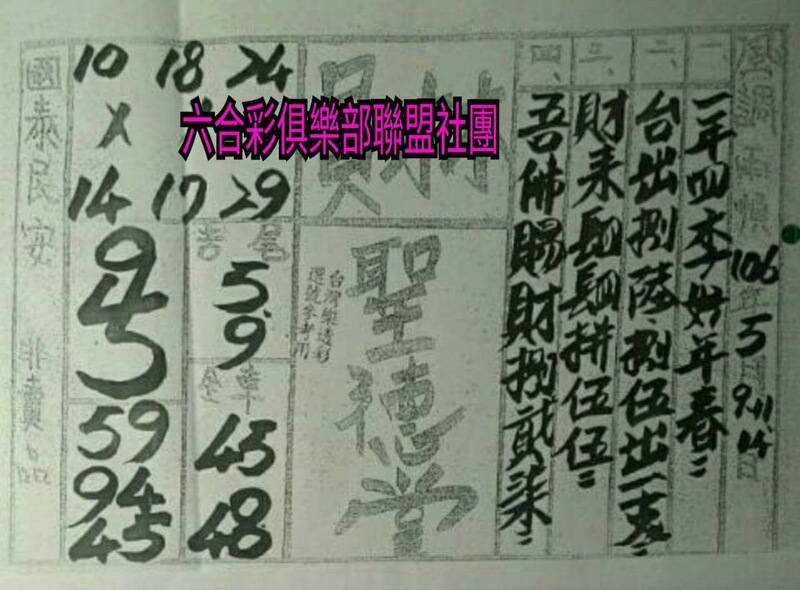 風調雨順 106年5月9.11.14日
一、一年四季好年春：
二、台出捌陸捌伍出一表：
三、財來
四、吾佛賜財捌貳柒：
聖德堂
台灣樂透彩
選號參考用
六合彩俱樂部聯盟社團
10 18 24
X
14 17 29
吉尾
5
9
全車
45
48
9
4
5
59
94
45
國泰民安 非賣品